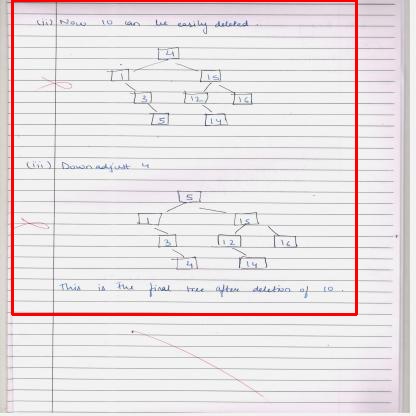 (ii) Now 10 can be easily deleted.
4
1 15
3 12 16
5 14
(iii) Down adjust 4
5
1 15
3 12 16
4 14
This is the final tree after deletion of 10.